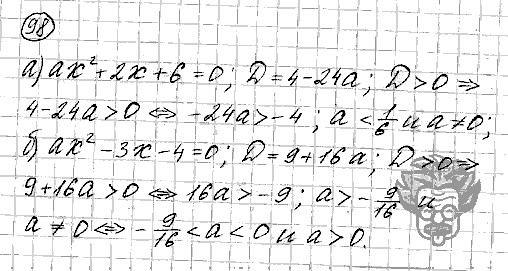 98
а) ax² + 2x + 6 = 0; D = 4 - 24a; D > 0 ⇒
4 - 24a > 0 ⇔ -24a > -4; a < 1/6 и a ≠ 0;
б) ax² - 3x - 4 = 0; D = 9 + 16a; D > 0 ⇒
9 + 16a > 0 ⇔ 16a > -9; a > -9/16 и
a ≠ 0 ⇔ -9/16 < a < 0 и a > 0.